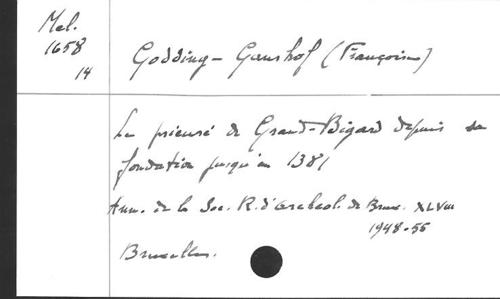 Mel.
1658
14
Godding-Ganshof (Françoise)
Le prieuré de Grand-Bigard depuis sa
fondation jusqu'en 1381
Ann. de la Soc. R. d'Archéol. de Brux. XLVIII
1948-55
Bruxelles.